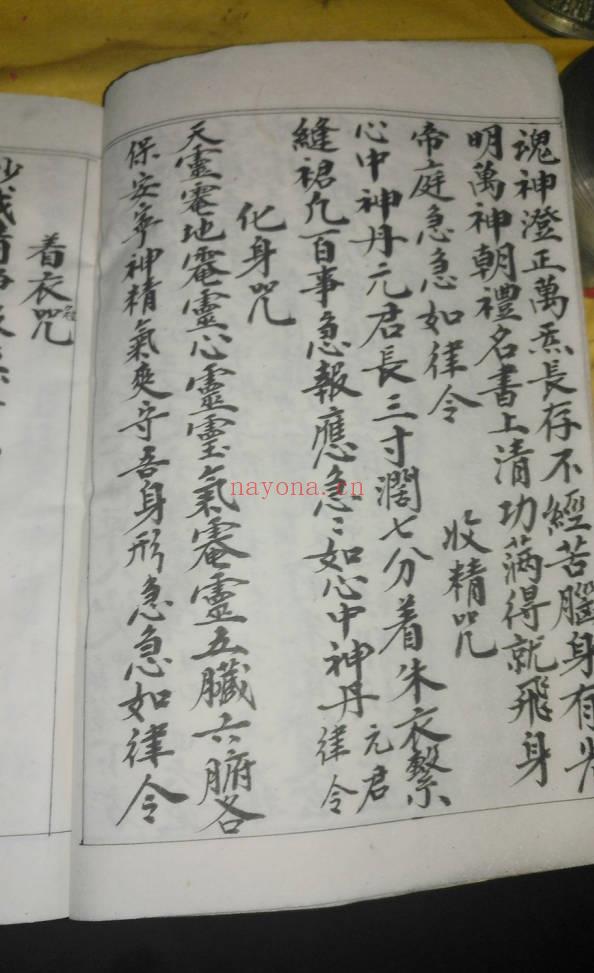 魂神澄正萬炁長存不經苦腦身有光
明萬神朝禮名書上清功滿得就飛身
帝庭急急如律令
收精咒
心中神丹元君長三寸濶七分着朱衣繫
縫裙凢百事急報應急〻如心中神丹元君律令
化身咒
天靈地靈心靈氣靈五臟六腑各
保安寧神精氣爽守吾身形急急如律令
着衣咒
nayona.cn